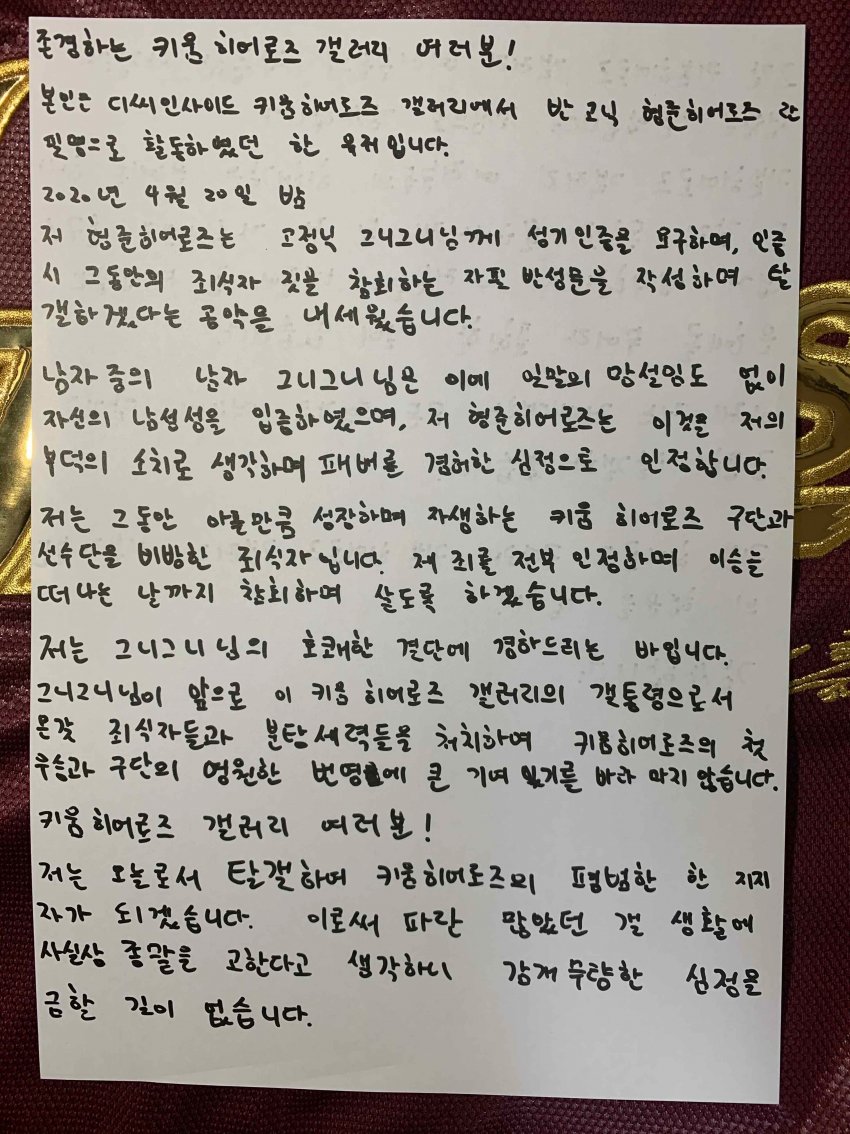 존경하는 키움 히어로즈 갤러리 여러분!
본인은 디씨인사이드 키움히어로즈 갤러리에서 반고닉 형준히어로즈 란
필명으로 활동하였던 한 유저입니다.
2020년 4월 20일 밤
저 형준히어로즈는 고정닉 그니그니님께 성기인증을 요구하며, 인증
시 그동안의 죄식자 짓을 참회하는 자필 반성문을 작성하며 탈
갤하겠다는 공약을 내세웠습니다.
남자 중의 남자 그니그니님은 이에 일말의 망설임도 없이
자신의 남성성을 입증하였으며, 저 형준히어로즈는 이것을 저의
부덕의 소치로 생각하며 패배를 겸허한 심정으로 인정합니다.
저는 그동안 아를만큼 성장하며 자생하는 키움 히어로즈 구단과
선수단을 비방한 죄식자입니다. 제 죄를 전부 인정하며 이승을
떠나는 날까지 참회하며 살도록 하겠습니다.
저는 그니그니님의 호쾌한 결단에 경하드리는 바입니다.
그니그니님이 앞으로 이 키움 히어로즈 갤러리의 갤통령으로서
온갖 죄식자들과 분탕세력들을 처치하여 키움히어로즈의 첫
우승과 구단의 영원한 번영에 큰 기여 있기를 바라 마지 않습니다.
키움히어로즈 갤러리 여러분!
저는 오늘로서 탈갤하여 키움히어로즈의 평범한 한 지지
자가 되겠습니다. 이로써 파란 많았던 갤 생활에
사실상 종말을 고한다고 생각하니 감개무량한 심정을
금할 길이 없습니다.
S